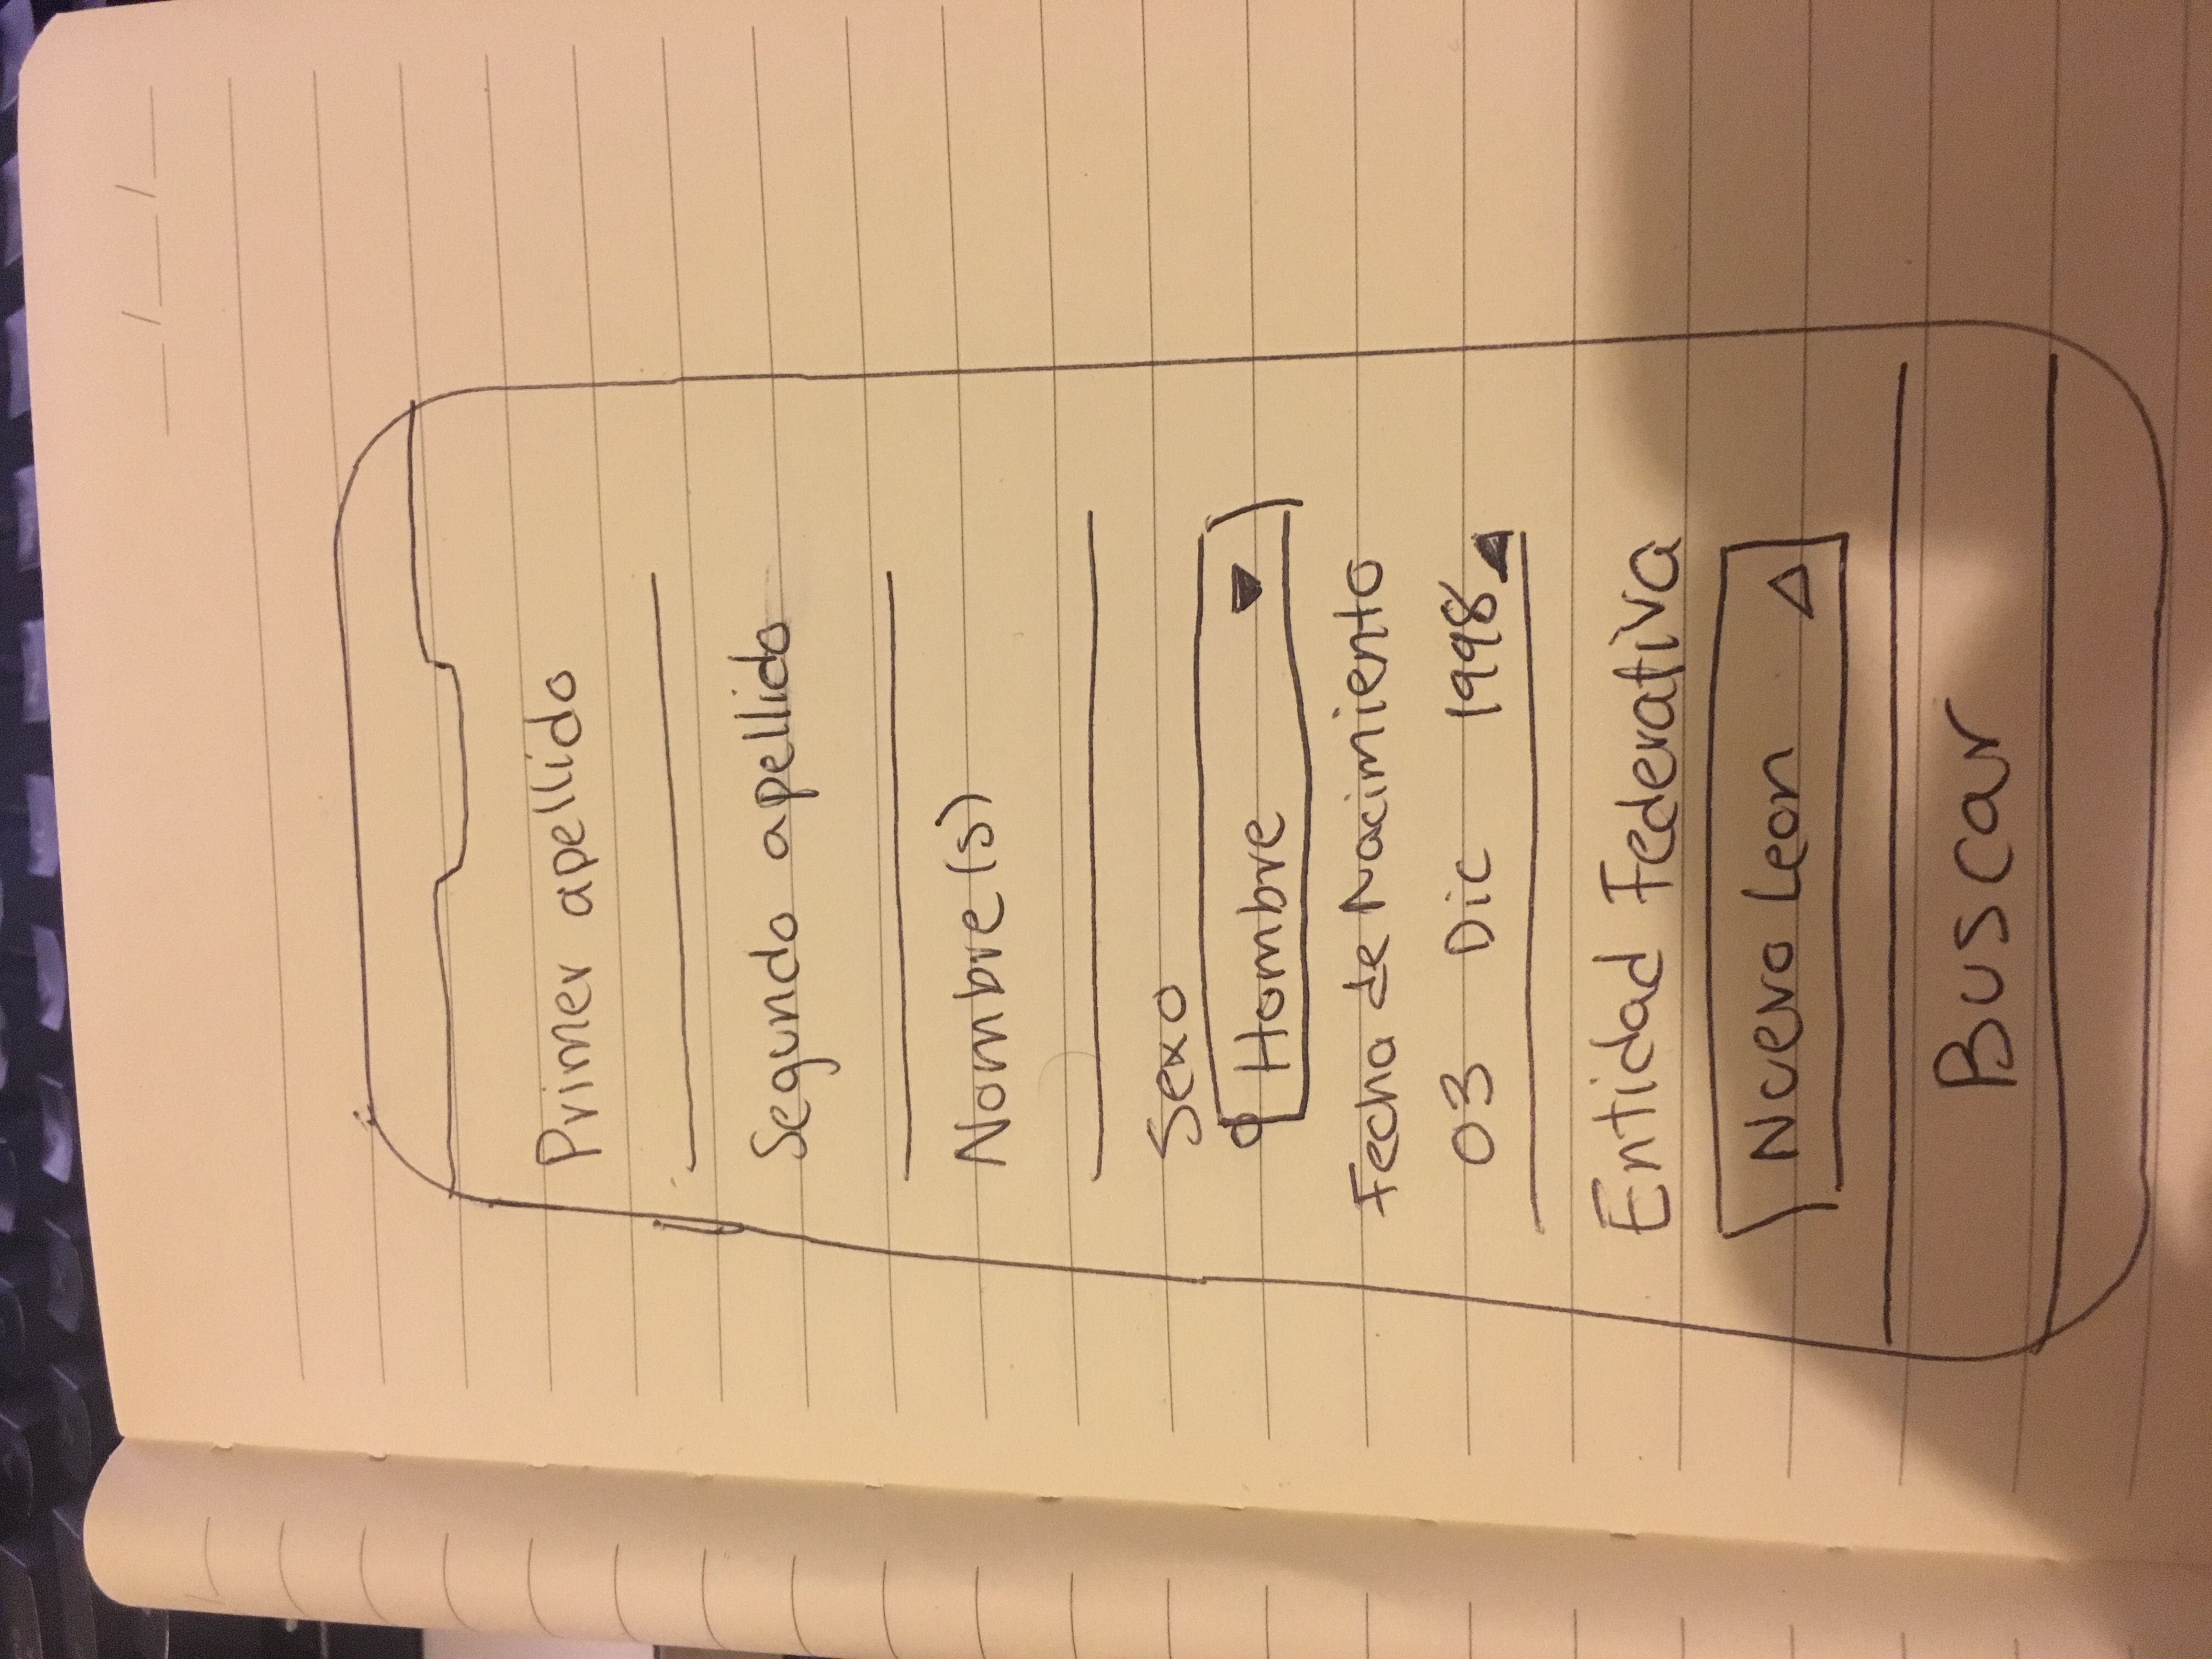 Primer apellido
Segundo apellido
Nombre(s)
Sexo
Hombre
Fecha de Nacimiento
03 Dic 1998
Entidad Federativa
Nuevo Leon
Buscar